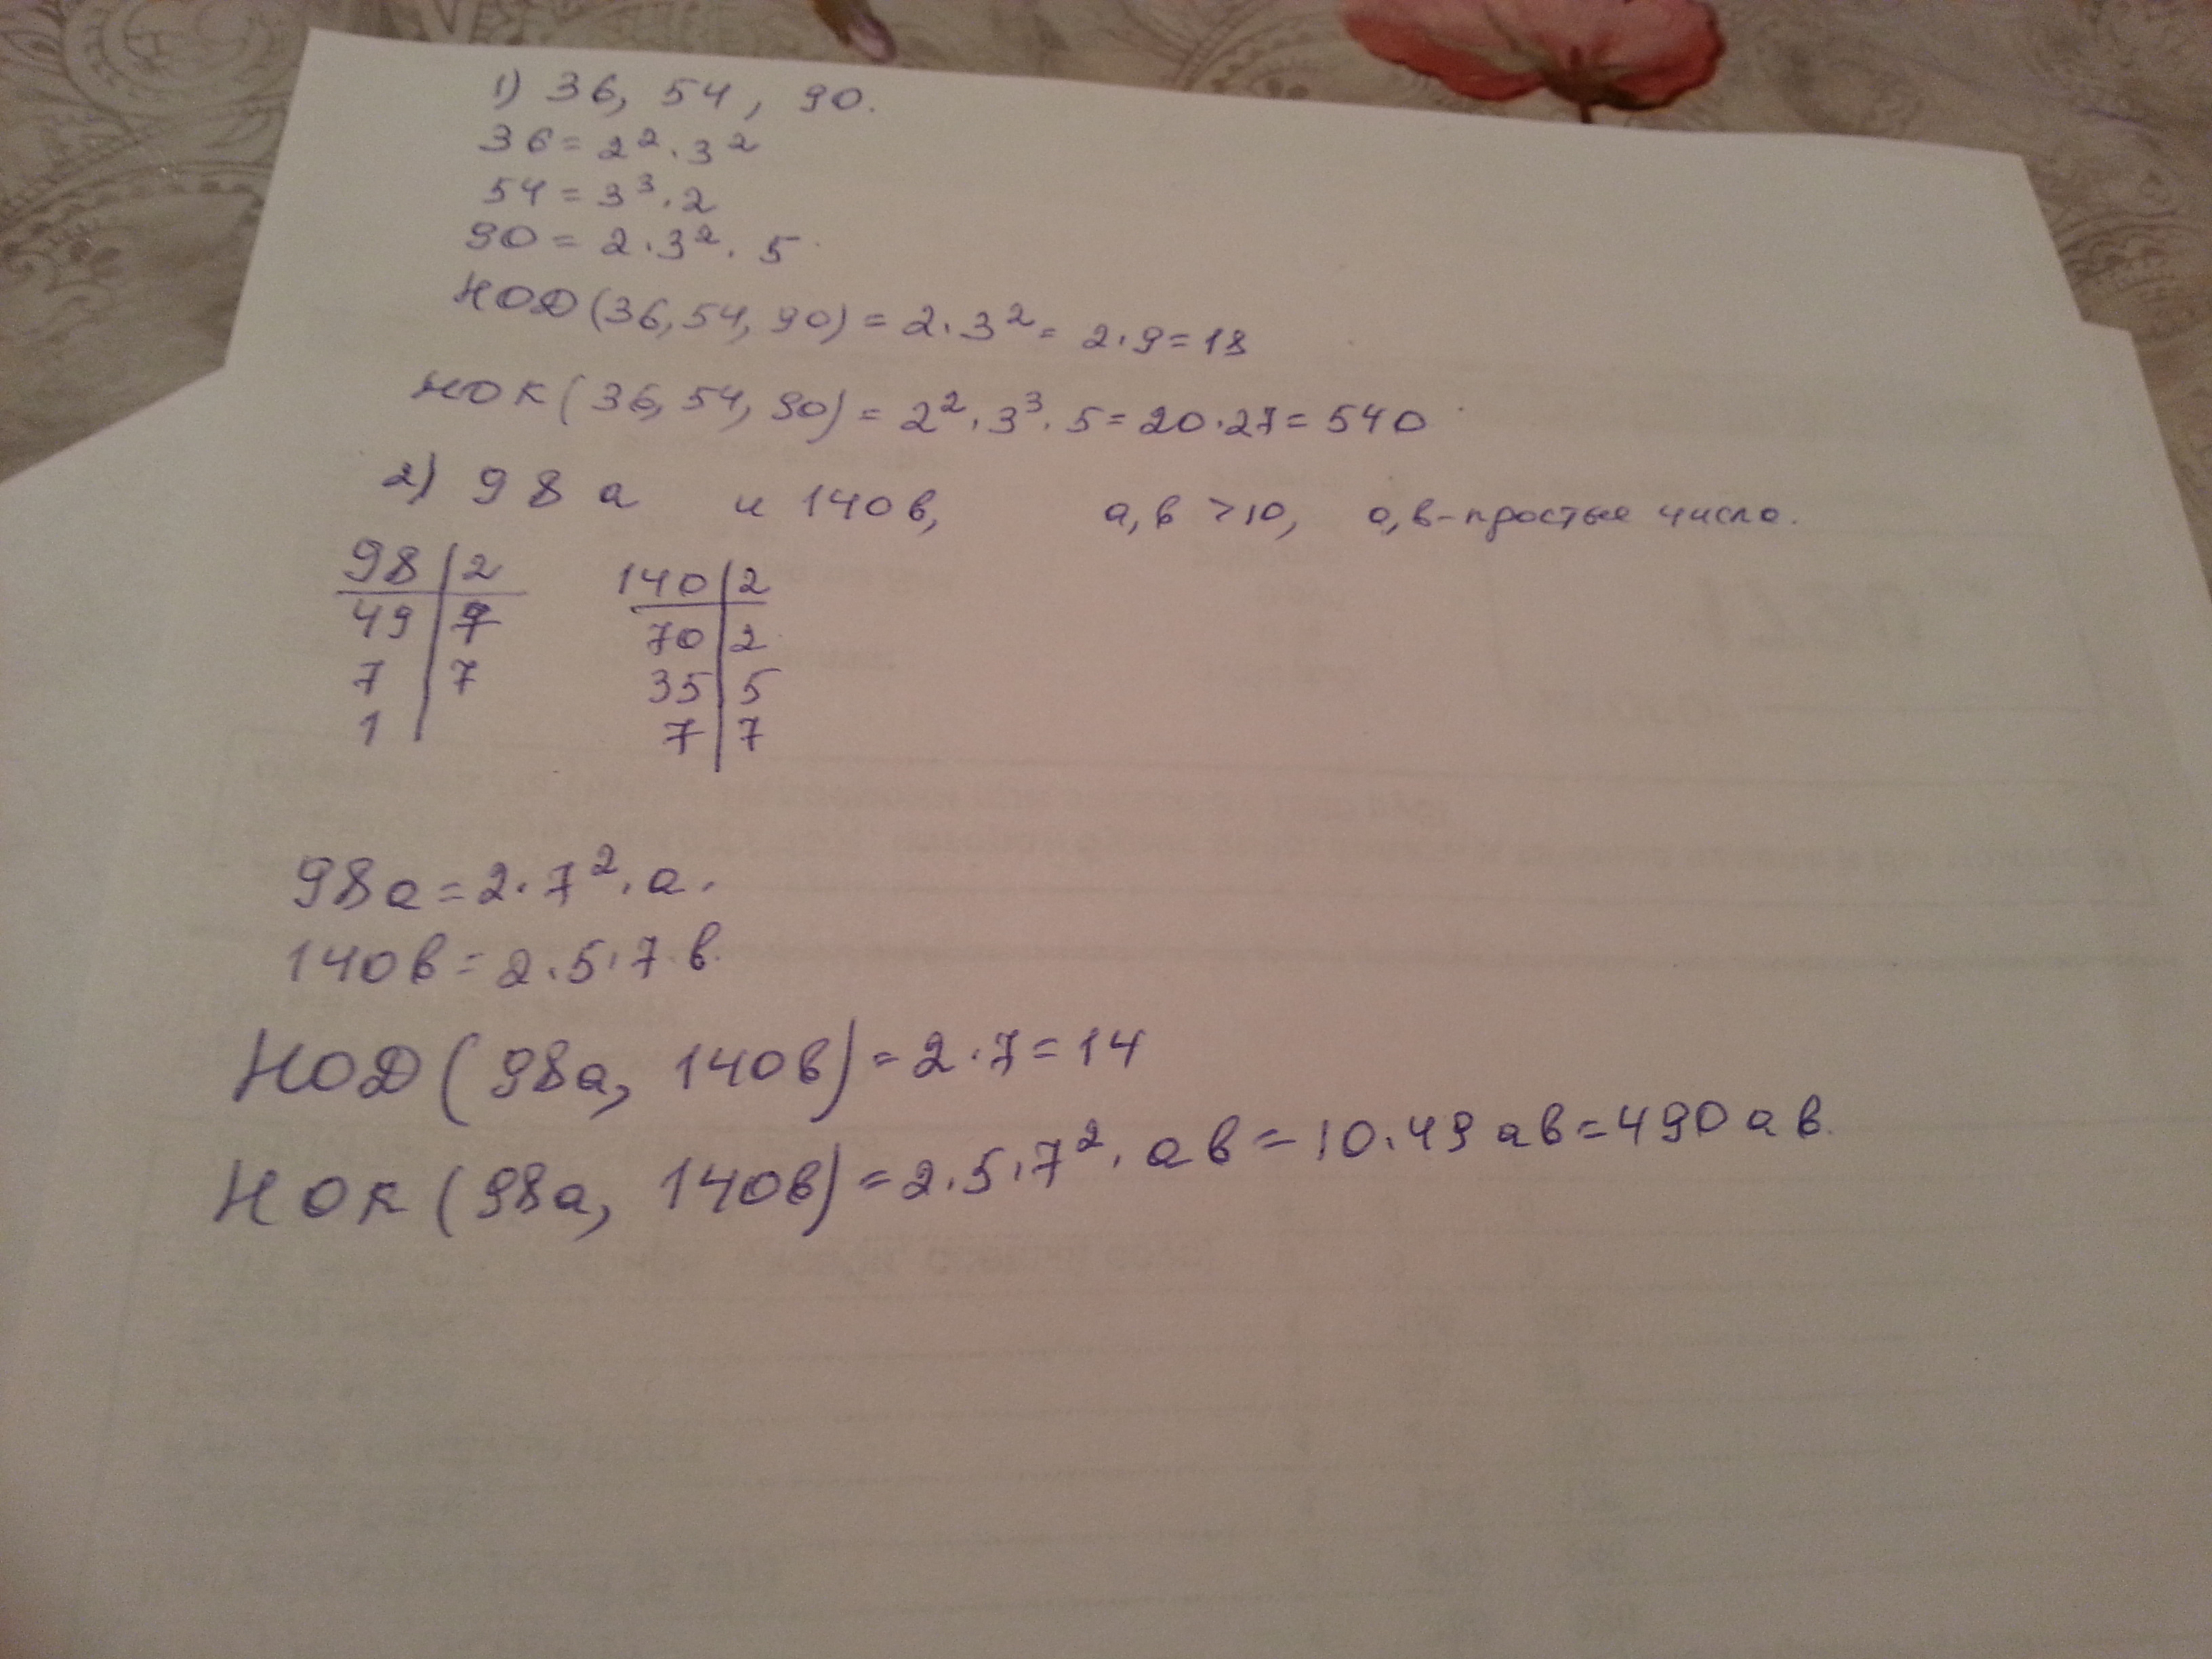 1) 36, 54, 90.
36 = 2² · 3²
54 = 3³ · 2
90 = 2 · 3² · 5
НОД (36, 54, 90) = 2 · 3² = 2 · 9 = 18
НОК (36, 54, 90) = 2² · 3³ · 5 = 20 · 27 = 540
2) 98а и 140в, а, в > 10, а, в - простые числа.
98 | 2 140 | 2
49 | 7 70 | 2
7 | 7 35 | 5
1 | 7 | 7
98а = 2 · 7² · а.
140в = 2 · 5 · 7 · в.
НОД (98а, 140в) = 2 · 7 = 14
НОК (98а, 140в) = 2 · 5 · 7² · ав = 10 · 49 ав = 490 ав.